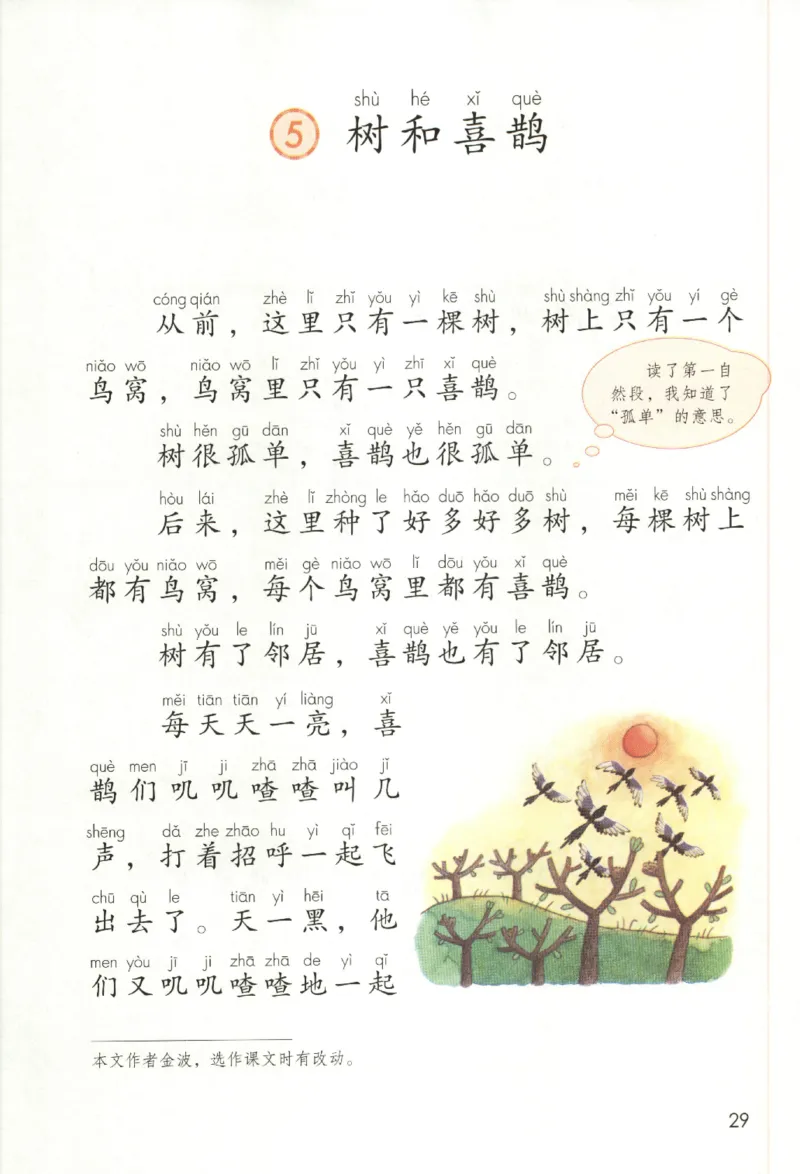 shù hé xǐ què
5 树和喜鹊
cóng qián zhè lǐ zhǐ yǒu yì kē shù shù shàng zhǐ yǒu yí gè
从前，这里只有一棵树，树上只有一个
niǎo wō niǎo wō lǐ zhǐ yǒu yì zhī xǐ què
鸟窝，鸟窝里只有一只喜鹊。
读了第一自
然段，我知道了
“孤单”的意思。
shù hěn gū dān xǐ què yě hěn gū dān
树很孤单，喜鹊也很孤单。
hòu lái zhè lǐ zhòng le hǎo duō hǎo duō shù měi kē shù shàng
后来，这里种了好多好多树，每棵树上
dōu yǒu niǎo wō měi gè niǎo wō lǐ dōu yǒu xǐ què
都有鸟窝，每个鸟窝里都有喜鹊。
shù yǒu le lín jū xǐ què yě yǒu le lín jū
树有了邻居，喜鹊也有了邻居。
měi tiān tiān yí liàng xǐ
每天天一亮，喜
què men jī ji zhā zhā jiào jǐ
鹊们叽叽喳喳叫几
shēng dǎ zhe zhāo hu yì qǐ fēi
声，打着招呼一起飞
chū qù le tiān yì hēi tā
出去了。天一黑，他
men yòu jī ji zhā zhā de yì qǐ
们又叽叽喳喳地一起
本文作者金波，选作课文时有改动。
29